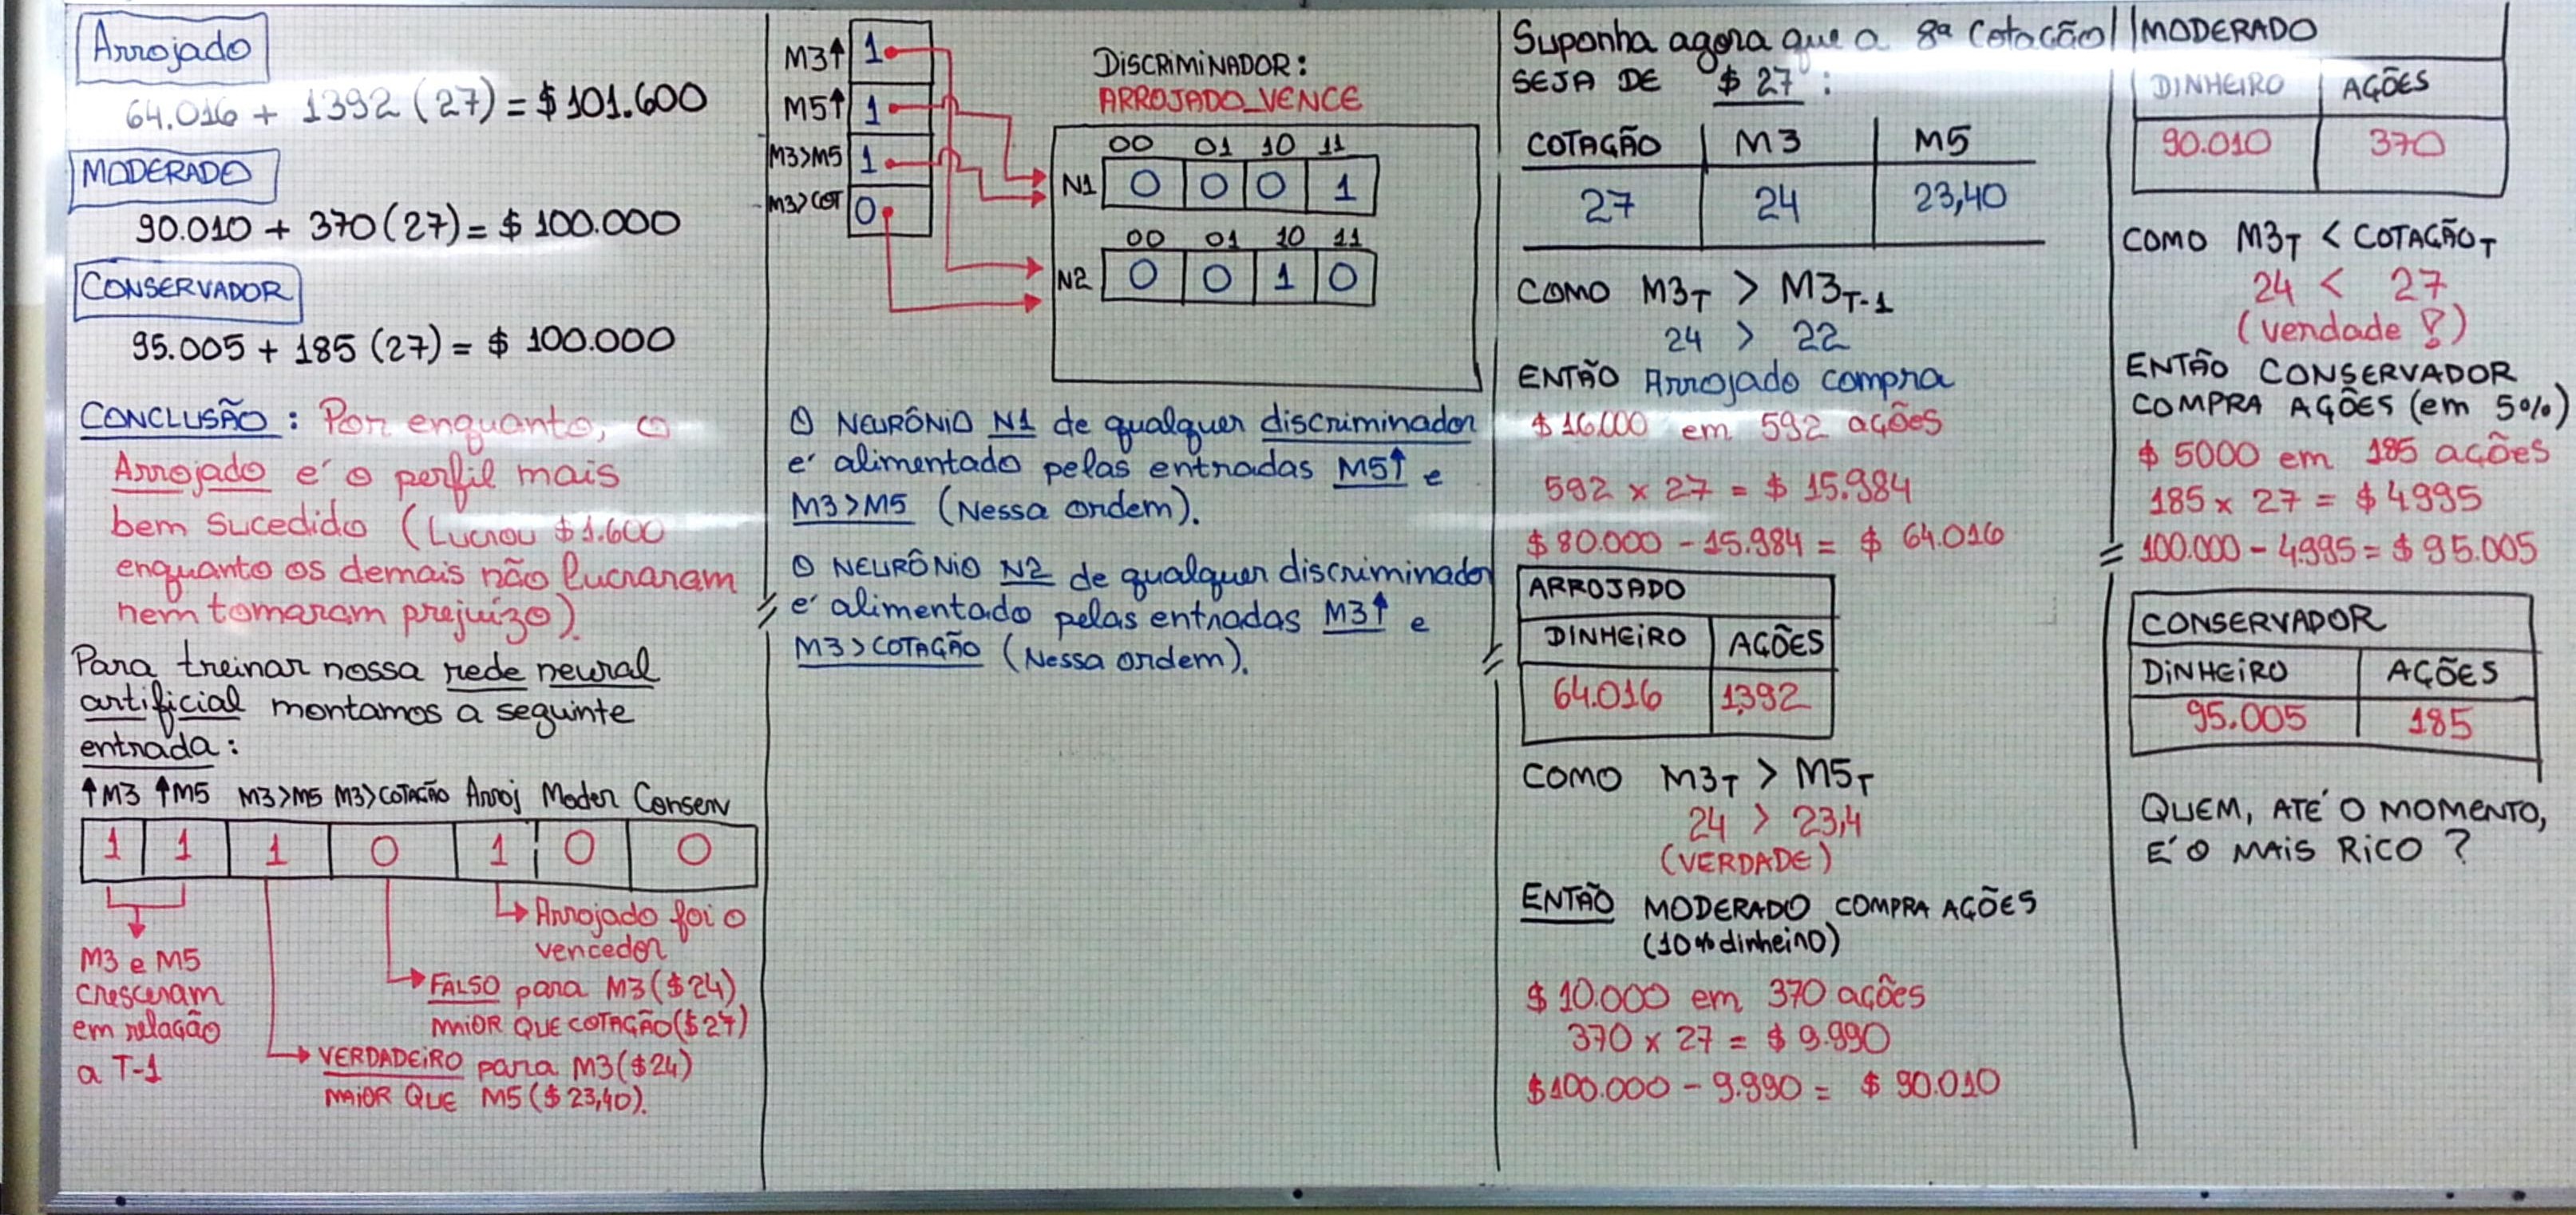 Arrojado
64.016 + 1392 (27) = $ 101.600
MODERADO
90.010 + 370 (27) = $ 100.000
CONSERVADOR
95.005 + 185 (27) = $ 100.000
CONCLUSÃO : Por enquanto, o
Arrojado é o perfil mais
bem sucedido (Lucrou $1.600
enquanto os demais não lucraram
nem tomaram prejuízo).
Para treinar nossa rede neural
artificial montamos a seguinte
entrada :
↑M3 ↑M5 M3>M5 M3>COTAÇÃO Arroj Moder Conserv
1 1 1 0 1 0 0
Arrojado foi o
vencedor
M3 e M5
cresceram
em relação
a T-1
FALSO para M3 ($24)
MAIOR QUE COTAÇÃO ($27)
VERDADEIRO para M3 ($24)
MAIOR QUE M5 ($23,40).
M3↑ 1
M5↑ 1
M3>M5 1
M3>COT 0
DISCRIMINADOR :
ARROJADO_VENCE
00 01 10 11
N1 0 0 0 1
00 01 10 11
N2 0 0 1 0
O NEURÔNIO N1 de qualquer discriminador
é alimentado pelas entradas M5↑ e
M3>M5 (Nessa ordem).
O NEURÔNIO N2 de qualquer discriminador
é alimentado pelas entradas M3↑ e
M3>COTAÇÃO (Nessa ordem).
Suponha agora que a 8ª Cotação
SEJA DE $ 27 :
COTAÇÃO M3 M5
27 24 23,40
COMO M3T > M3T-1
24 > 22
ENTÃO Arrojado compra
$ 16.000 em 592 ações
592 x 27 = $ 15.984
$ 80.000 - 15.984 = $ 64.016
ARROJADO
DINHEIRO AÇÕES
64.016 1392
COMO M3T > M5T
24 > 23,4
(VERDADE)
ENTÃO MODERADO COMPRA AÇÕES
(10% dinheiro)
$ 10.000 em 370 ações
370 x 27 = $ 9.990
$100.000 - 9.990 = $ 90.010
MODERADO
DINHEIRO AÇÕES
90.010 370
COMO M3T < COTAÇÃOT
24 < 27
(verdade !)
ENTÃO CONSERVADOR
COMPRA AÇÕES (em 5%)
$ 5000 em 185 ações
185 x 27 = $ 4995
100.000 - 4.995 = $ 95.005
CONSERVADOR
DINHEIRO AÇÕES
95.005 185
QUEM, ATÉ O MOMENTO,
É O MAIS RICO ?